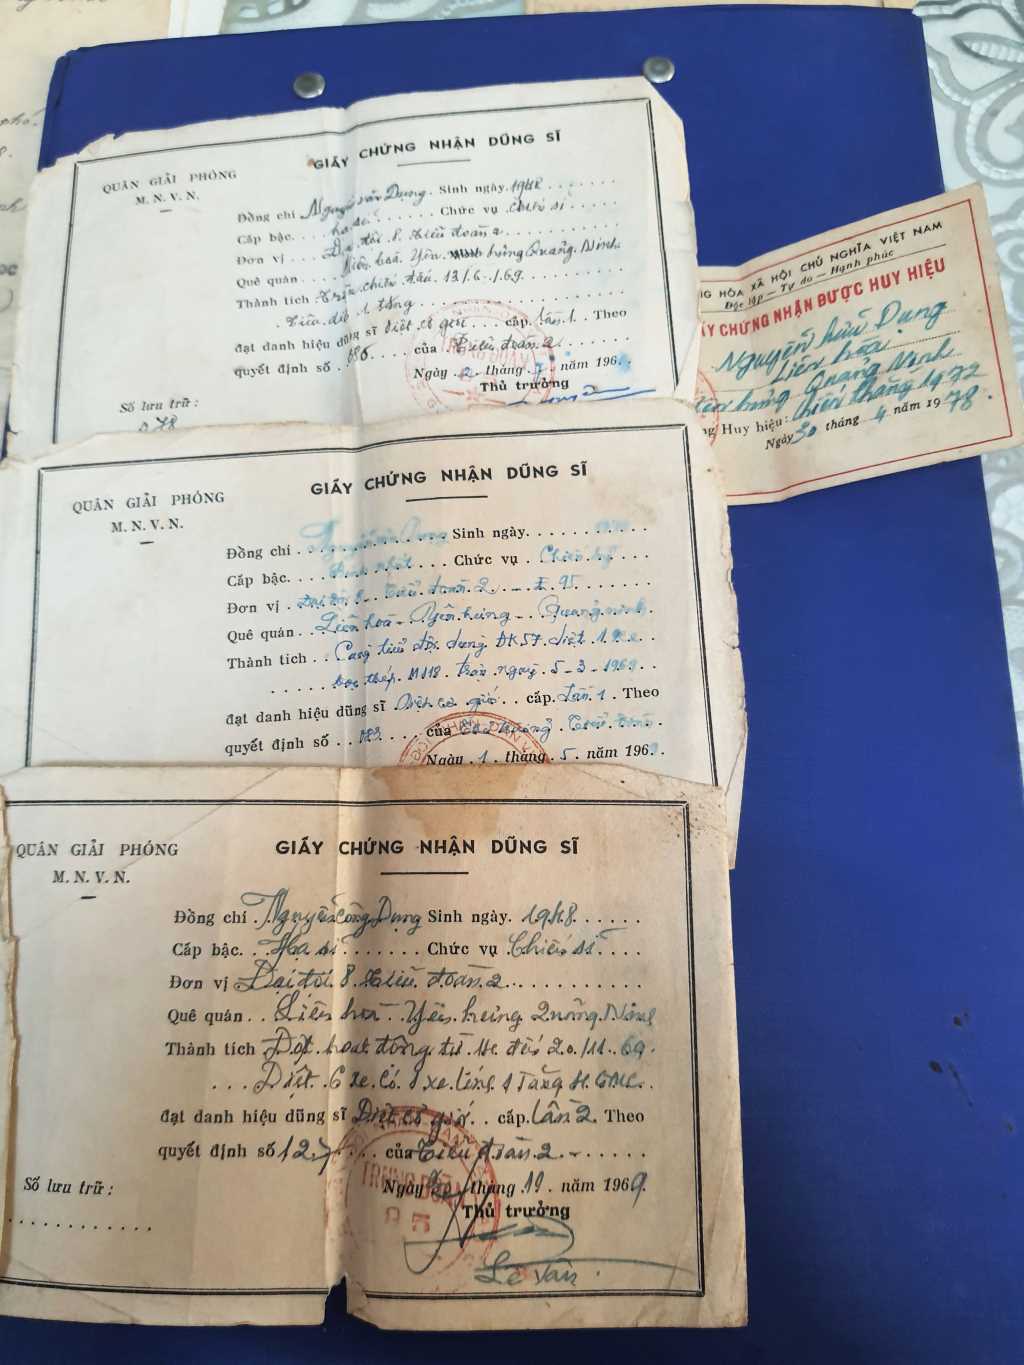 GIẤY CHỨNG NHẬN DŨNG SĨ
QUÂN GIẢI PHÓNG
M. N. V. N.
Đồng chí Nguyễn văn Dụng. Sinh ngày. 1948
Cấp bậc. hạ sĩ Chức vụ Chiến sĩ
Đơn vị Đại đội 8 tiểu đoàn 2
Quê quán Liên hoà. Yên hưng Quảng. Ninh
Thành tích Trận chiến đấu 13/6/69
tăng
đạt danh hiệu dũng sĩ diệt cơ giới cấp lần 1. Theo
quyết định số của Tiểu đoàn 2
Ngày 2 tháng 7 năm 196
Thủ trưởng
Số lưu trữ:
TRUNG ĐOÀN
HÒA XÃ HỘI CHỦ NGHĨA VIỆT NAM
Độc lập - Tự do - Hạnh phúc
CHỨNG NHẬN ĐƯỢC HUY HIỆU
Nguyễn hữu Dụng
Liên hòa
hưng Quảng Ninh
Huy hiệu: chiến thắng 1972
Ngày 30 tháng 4 năm 1978.
GIẤY CHỨNG NHẬN DŨNG SĨ
QUÂN GIẢI PHÓNG
M. N. V. N.
Đồng chí Nguyễn văn Dụng Sinh ngày
Cấp bậc. Binh nhất Chức vụ Chiến sỹ
Đơn vị Đại đội 8 - Tiểu đoàn 2 - E 95
Quê quán Liên hoà - Yên hưng - Quảng ninh
Thành tích Cùng tiểu đội dùng ĐK57 diệt 1 xe
bọc thép M118 trận ngày 5-3-1969
đạt danh hiệu dũng sĩ Diệt cơ giới cấp Lần 1 Theo
quyết định số 083 của Thủ trưởng Tiểu đoàn
Ngày 1 tháng 5 năm 196
GIẤY CHỨNG NHẬN DŨNG SĨ
QUÂN GIẢI PHÓNG
M. N. V. N.
Đồng chí Nguyễn Công Dụng Sinh ngày. 1948
Cấp bậc. Hạ sĩ Chức vụ Chiến sĩ
Đơn vị Đại đội 8 tiểu đoàn 2
Quê quán Liên hoà. Yên hưng Quảng Ninh
Thành tích Đợt hoạt động từ đến 20/11/69.
Diệt 6 xe có 1 xe tăng GMC
đạt danh hiệu dũng sĩ Diệt cơ giới cấp. lần 2 Theo
quyết định số 127 của Tiểu đoàn 2
Ngày 20 tháng 11 năm 1969.
Thủ trưởng
Lê Văn
Số lưu trữ:
TRUNG ĐOÀN
95